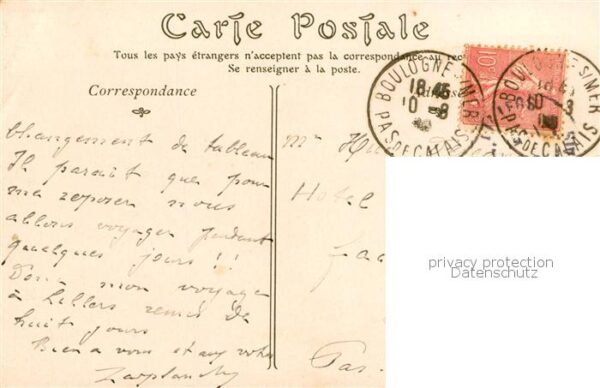 Carte Postale
Tous les pays étrangers n'acceptent pas la correspondance au rec
Se renseigner à la poste.
Correspondance
Changement de tableau
Il parait que pour
me reposer nous
allons voyager pendant
quelques jours !!
Donc mon voyage
à Lillers remis de
huit jours
Bien à vous et aux vôtres
BOULOGNE-S-MER
18 45
10 - 8
PAS DE CALAIS
10
BOULOGNE-S-MER
PAS DE CALAIS
Mr
Hotel
Pas.
privacy protection
Datenschutz